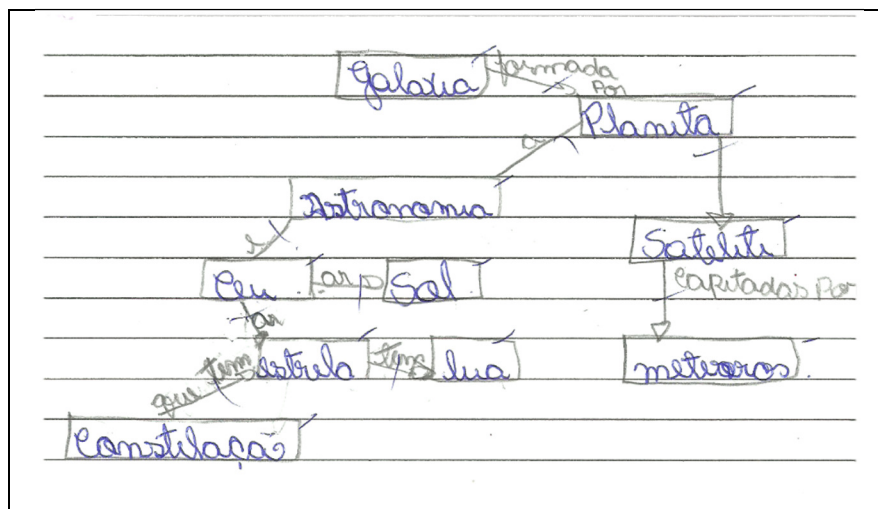 Galaxia formada
Por
Planita
a
Astronomia
Sateliti
Ceu ar Sol
Capitadas Por
ar
estrela tem lua meteoros
que tem
Constelação